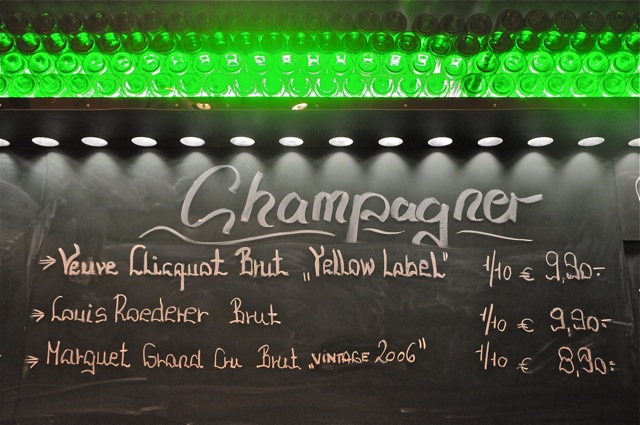 Champagner
→ Veuve Clicquot Brut „Yellow Label" 1/10 € 9,90.-
→ Louis Roederer Brut 1/10 € 9,90.-
→ Marguet Grand Cru Brut „VINTAGE 2006" 1/10 € 8,90.-